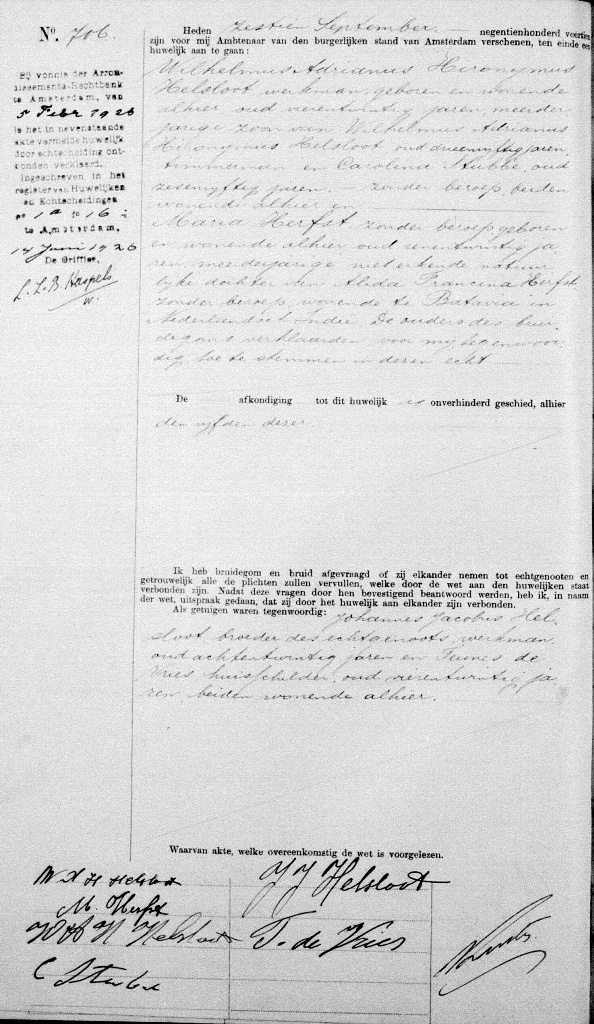 No. 706.
Heden zestien September negentienhonderd veertien
zijn voor mij Ambtenaar van den burgerlijken stand van Amsterdam verschenen, ten einde een
huwelijk aan te gaan:
Wilhelmus Adrianus Hieronymus
Helsloot, werkman, geboren en wonende
alhier oud vierentwintig jaren, meerder
jarige zoon van Wilhelmus Adrianus
Hieronymus Helsloot, oud drieenvijftig jaren,
timmerman en Carolina Stubbe, oud
zesenvijftig jaren, zonder beroep beiden
wonende alhier en
Maria Herfst, zonder beroep geboren
en wonende alhier oud eenentwintig ja
ren, meerderjarige niet erkende natuur
lijke dochter van Alida Francina Herfst
zonder beroep, wonende te Batavia in
Nederlandsch Indië. De ouders des brui
degoms verklaarden voor mij tegenwoor
dig, toe te stemmen in dezen echt
De afkondiging tot dit huwelijk is onverhinderd geschied, alhier
den vijfden dezer
Ik heb bruidegom en bruid afgevraagd of zij elkander nemen tot echtgenooten en
getrouwelijk alle de plichten zullen vervullen, welke door de wet aan den huwelijken staat
verbonden zijn. Nadat deze vragen door hen bevestigend beantwoord werden, heb ik, in naam
der wet, uitspraak gedaan, dat zij door het huwelijk aan elkander zijn verbonden.
Als getuigen waren tegenwoordig: Johannes Jacobus Hel
sloot, broeder des echtgenoots, werkman
oud achtentwintig jaren en Teunes de
Vries huisschilder, oud vierentwintig ja
ren, beiden wonende alhier.
Waarvan akte, welke overeenkomstig de wet is voorgelezen.
Bij vonnis der Arron-
dissements-Rechtbank
te Amsterdam, van
5 Febr 1926
is het in nevenstaande
akte vermelde huwelijk
door echtscheiding ont-
bonden verklaard.
Ingeschreven in het
register van Huwelijken
en Echtscheidingen
1a fo 16
te Amsterdam,
14 Juni 1926
De Griffier,
L. L. B. Haspels
W A H Helsloot
M. Herfst
W A H Helsloot
C Stubbe
J J Helsloot
T. de Vries